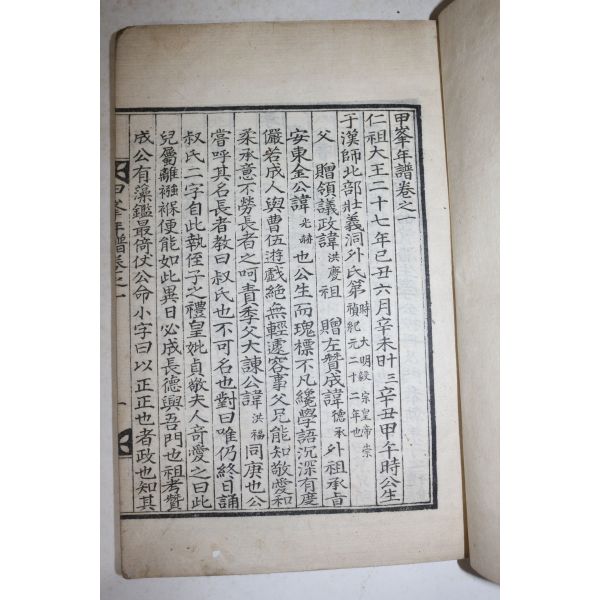 甲峯年譜卷之一
仁祖大王二十七年己丑六月辛未十三日辛丑甲午時公生
于漢師北部壯義洞外氏第時大明毅宗皇帝崇禎紀元二十二年也
父 贈領議政諱洪慶祖 贈左贊成諱德承外祖承旨
安東金公諱光赫也公生而瑰標不凡纔學語沉深有度
儼若成人與曹伍遊戲絶無輕遽容事父兄能知敬愛和
柔承意不勞長者之呵責季父大諫公諱洪福同庚也公
嘗呼其名長者教曰叔氏也不可名也對曰唯仍終日誦
叔氏二字自此執侄子之禮皇妣貞敬夫人奇愛之曰此
兒屬離襁褓便能如此異日必成長德興吾門也祖考贊
成公有藻鑑最倚仗公命小字曰以正正也者政也知其
甲峯年譜卷之一 一